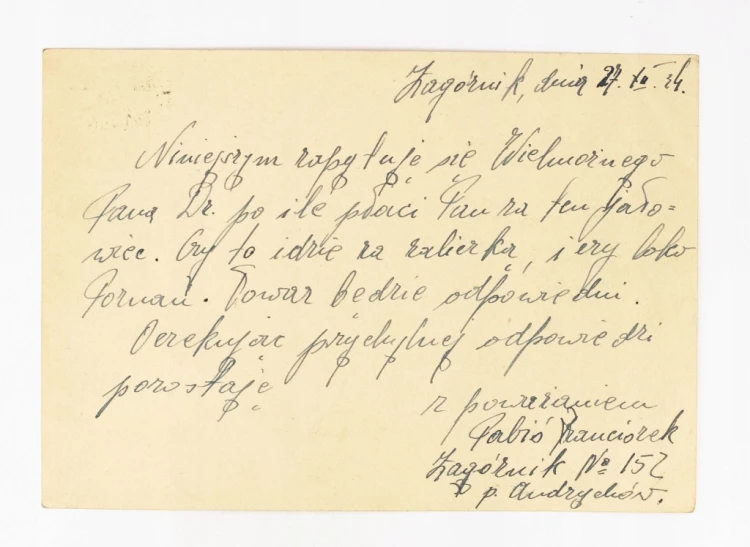 Zagórnik, dnia 27. XII. 34.
Niniejszym zapytuję się Wielmożnego
Pana Dr. po ile płaci Pan za ten jało=
wiec. Czy to idzie za zaliczką, i czy loko
Poznań. Towar bedzie odpowiedni.
Oczekując przychylnej odpowiedzi
pozostaję
z poważaniem
Franciszek
Zagórnik No 152
p. Andrychów.